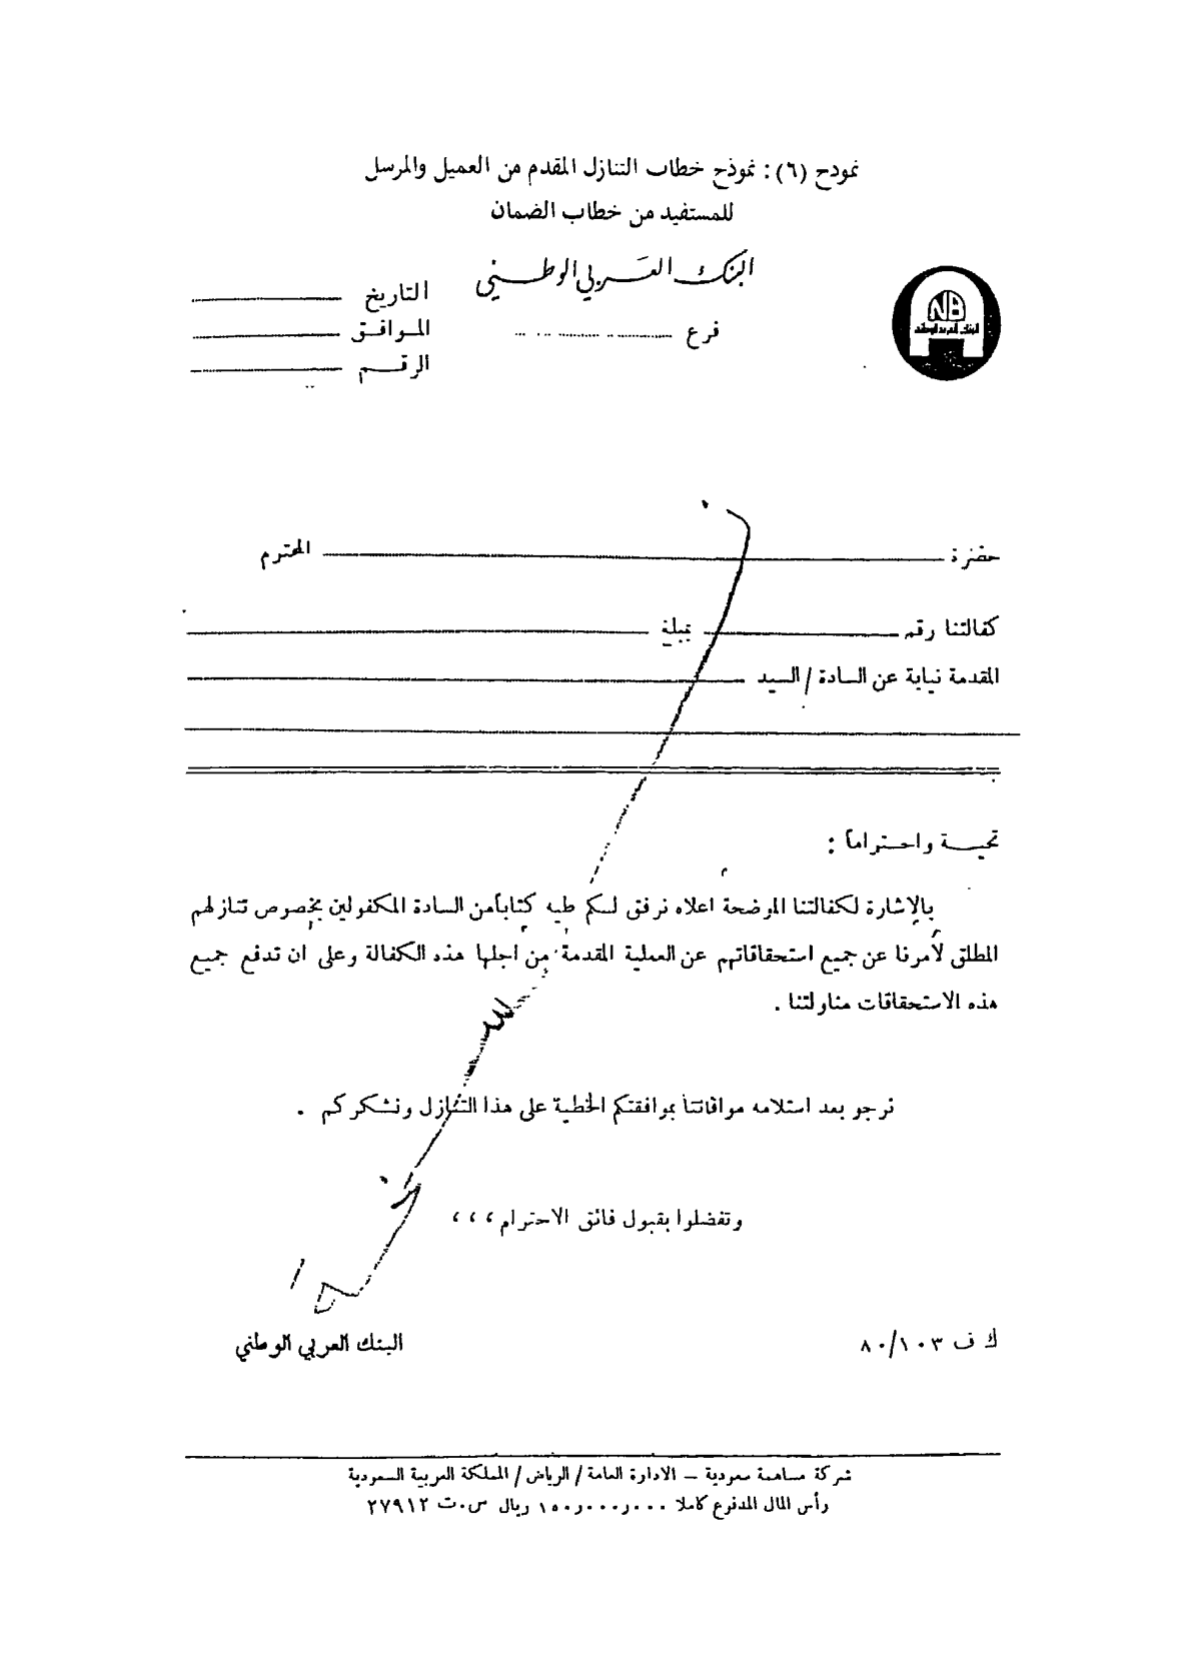 نمودح (٦) : نموذح خطاب التنازل المقدم من العميل والمرسل
للمستفيد من خطاب الضمان
البنك العربي الوطني
التاريخ
فرع
الموافق
الرقم
NB
البنك العربي الوطني
حضرة المحترم
كفالتنا رقم بمبلغ
المقدمة نيابة عن السادة / السيد
تحية واحتراماً :
بالإشارة لكفالتنا الموضحة اعلاه نرفق لكم طيه كتاباً من السادة المكفولين بخصوص تنازلهم
المطلق لأمرنا عن جميع استحقاقاتهم عن العملية المقدمة من اجلها هذه الكفالة وعلى ان تدفع جميع
هذه الاستحقاقات مناولتنا .
نرجو بعد استلامه موافاتنا بموافقتكم الخطية على هذا التنازل ونشكركم .
وتفضلوا بقبول فائق الاحترام ،،،
ك ف ٨٠/١٠٣
البنك العربي الوطني
شركة مساهمة سعودية – الادارة العامة / الرياض / المملكة العربية السعودية
رأس المال المدفوع كاملا ١٥٠٫٠٠٠٫٠٠٠ ريال س.ت ٢٧٩١٢